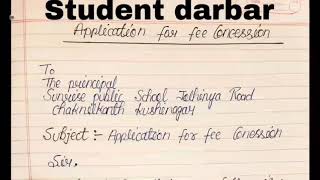 Student darbar
Application for fee Concession
To
The principal
Sunrise public School Road
Kushinagar
Subject :- Application for fee Concession
Sir.